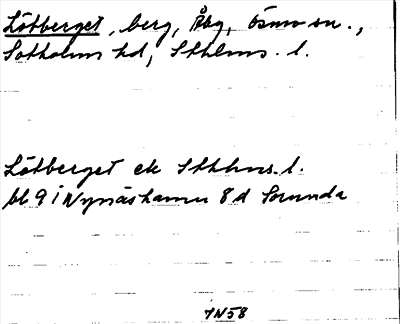 Lötberget, berg, Åby, Ösmo sn.,
Sotholms hd, Sthlms. l.
Lötberget ek Sthlms. l.
bl 9 i Nynäshamn 8d Sorunda
7N58